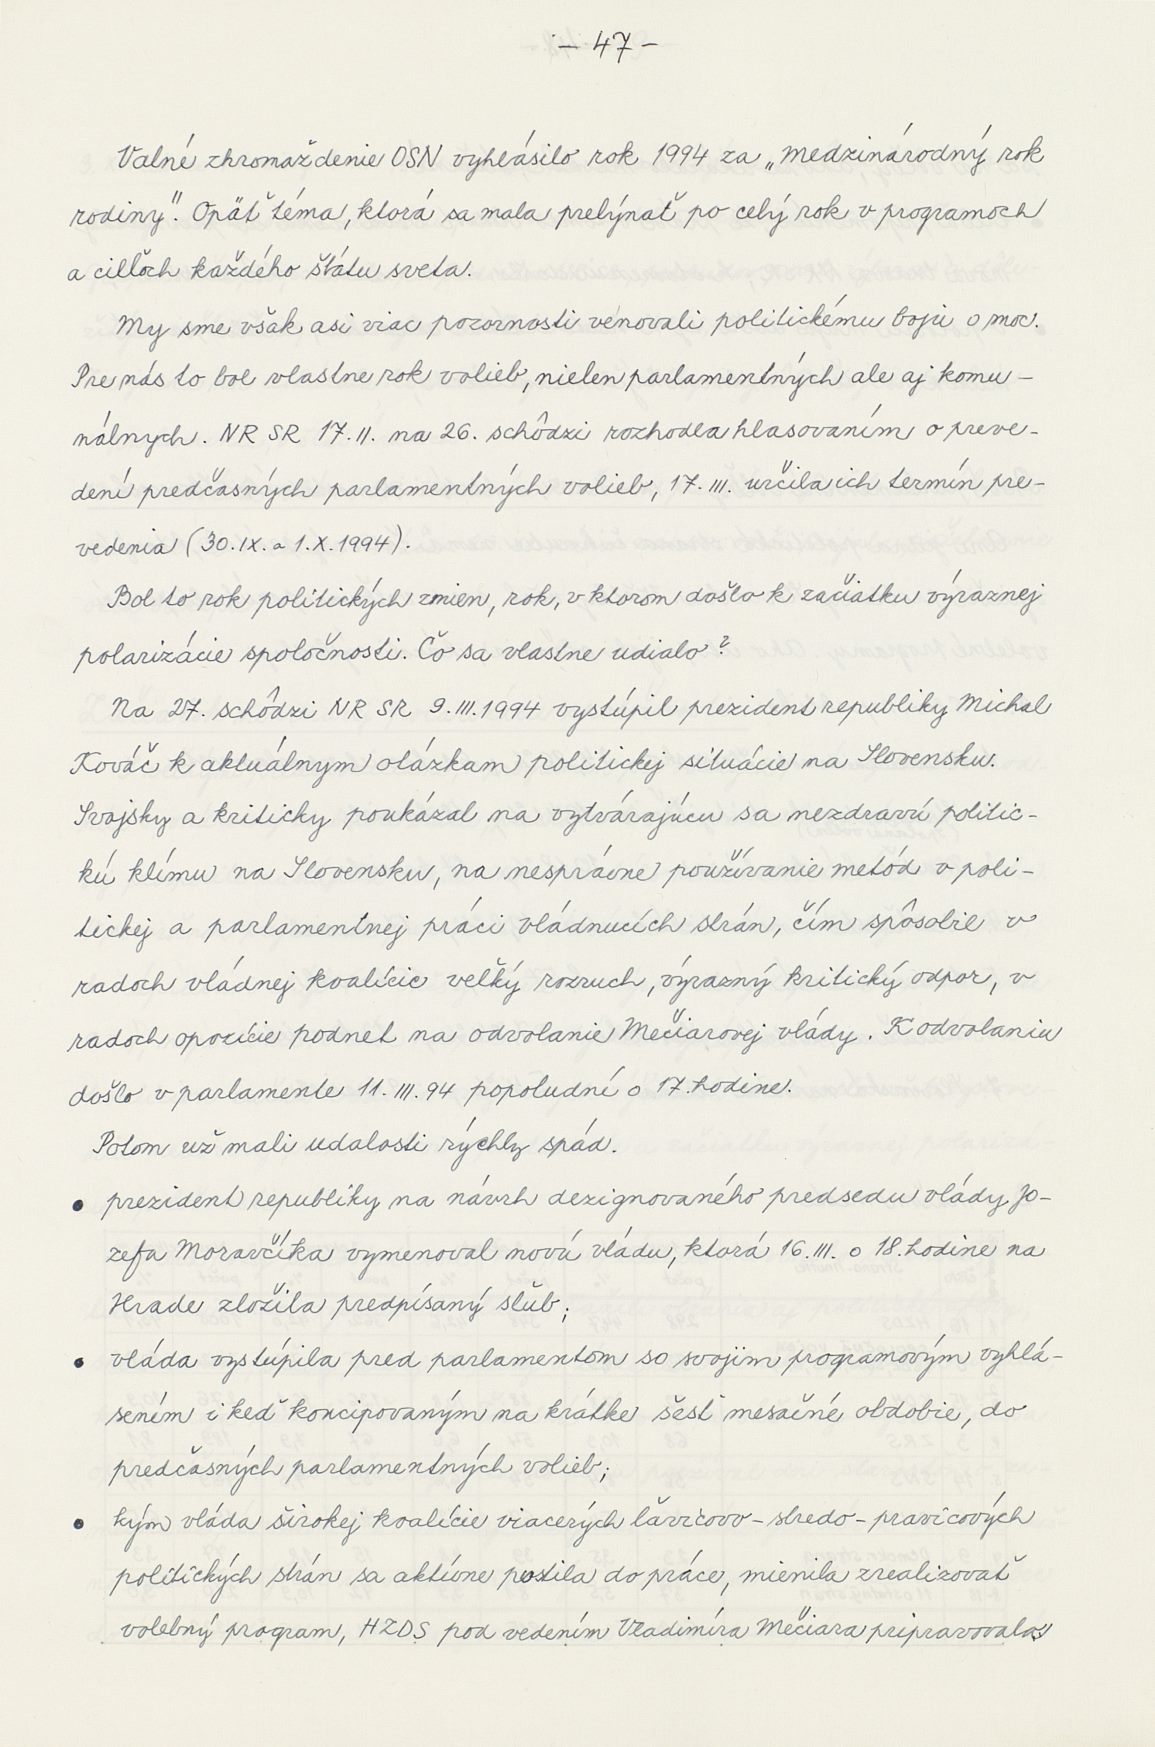 - 47 -
Valné zhromaždenie OSN vyhlásilo rok 1994 za „Medzinárodný rok
rodiny". Opäť téma, ktorá sa mala prelýnať po celý rok v programoch
a cieľoch každého štátu sveta.
My sme však asi viac pozornosti venovali politickému boju o moc.
Pre nás to bol vlastne rok volieb, nielen parlamentných ale aj komu-
nálnych. NR SR 17.II. na 26. schôdzi rozhodla hlasovaním o preve-
dení predčasných parlamentných volieb, 17.III. určila ich termín pre-
vedenia (30.IX. a 1.X.1994).
Bol to rok politických zmien, rok, v ktorom došlo k začiatku výraznej
polarizácie spoločnosti. Čo sa vlastne udialo?
Na 27. schôdzi NR SR 9.III.1994 vystúpil prezident republiky Michal
Kováč k aktuálnym otázkam politickej situácie na Slovensku.
Svojsky a kriticky poukázal na vytvárajúcu sa nezdravú politic-
kú klímu na Slovensku, na nesprávne používanie metód v poli-
tickej a parlamentnej práci vládnucích strán, čím spôsobil v
radoch vládnej koalície veľký rozruch, výrazný kritický odpor, v
radoch opozície podnet na odvolanie Mečiarovej vlády. K odvolaniu
došlo v parlamente 11.III.94 popoludní o 17.hodine.
Potom už mali udalosti rýchly spád.
• prezident republiky na návrh dezignovaného predsedu vlády Jo-
zefa Moravčíka vymenoval novú vládu, ktorá 16.III. o 18.hodine na
Hrade zložila predpísaný sľub;
• vláda vystúpila pred parlamentom so svojim programovým vyhlá-
sením i keď koncipovaným na krátke šesť mesačné obdobie, do
predčasných parlamentných volieb;
• kým vláda širokej koalície viacerých ľavicovo-stredo-pravicových
politických strán sa aktívne pustila do práce, mienila zrealizovať
volebný program, HZDS pod vedením Vladimíra Mečiara pripravovalo